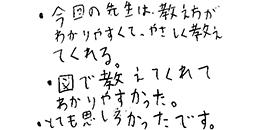 ・今回の先生は、教え方が
わかりやすくて、やさしく教え
てくれる。
・図で教えてくれて
わかりやすかった。
・とても思しろかったです。